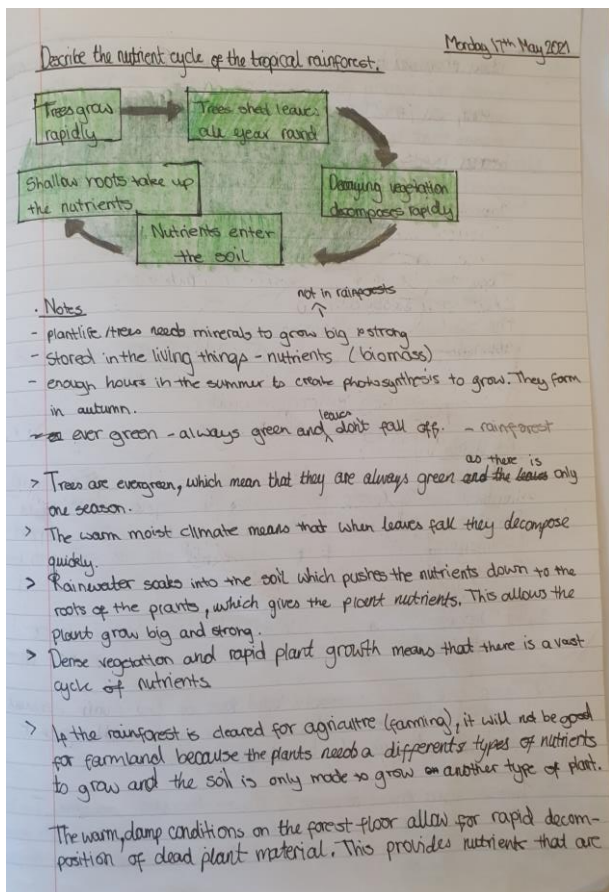 Monday 17th May 2021
Decribe the nutrient cycle of the tropical rainforest.
Trees grow
rapidly
Trees shed leaves
all year round
Decaying vegetation
decomposes rapidly
Nutrients enter
the soil
Shallow roots take up
the nutrients
. Notes
not in rainforests
- plantlife/trees needs minerals to grow big & strong
- stored in the living things - nutrients (biomass)
- enough hours in the summer to create photosynthesis to grow. They form
in autumn.
- ever green - always green and leaves don't fall off. - rainforest
> Trees are evergreen, which mean that they are always green and the leaves as there is only
one season.
> The warm moist climate means that when leaves fall they decompose
quickly.
> Rainwater soaks into the soil which pushes the nutrients down to the
roots of the plants, which gives the plant nutrients. This allows the
plant grow big and strong.
> Dense vegetation and rapid plant growth means that there is a vast
cycle of nutrients
> If the rainforest is cleared for agricultre (farming), it will not be good
for farmland because the plants need a differents types of nutrients
to grow and the soil is only made to grow another type of plant.
The warm, damp conditions on the forest floor allow for rapid decom-
position of dead plant material. This provides nutrients that are